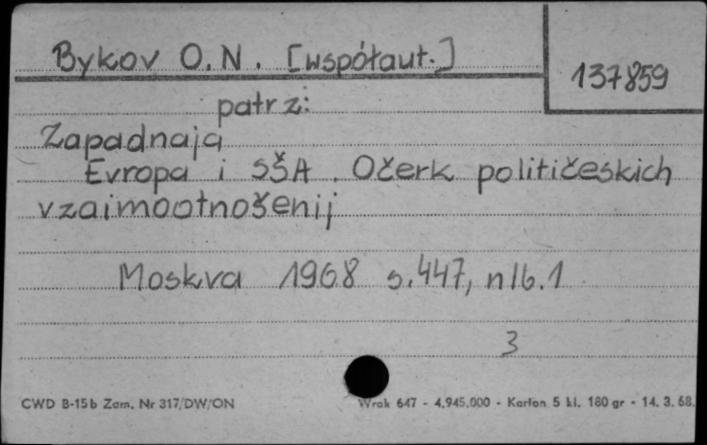 Bykov O.N. [współaut.]
137859
patrz:
Zapadnaja
Evropa i SŠA. Očerk političeskich
vzaimootnošenij
Moskva 1968 s.447, nlb.1
3
CWD B-15b Zam. Nr 317/DW/ON
Wrak 647 - 4.945.000 - Karton 5 kl. 180 gr - 14. 3. 68.